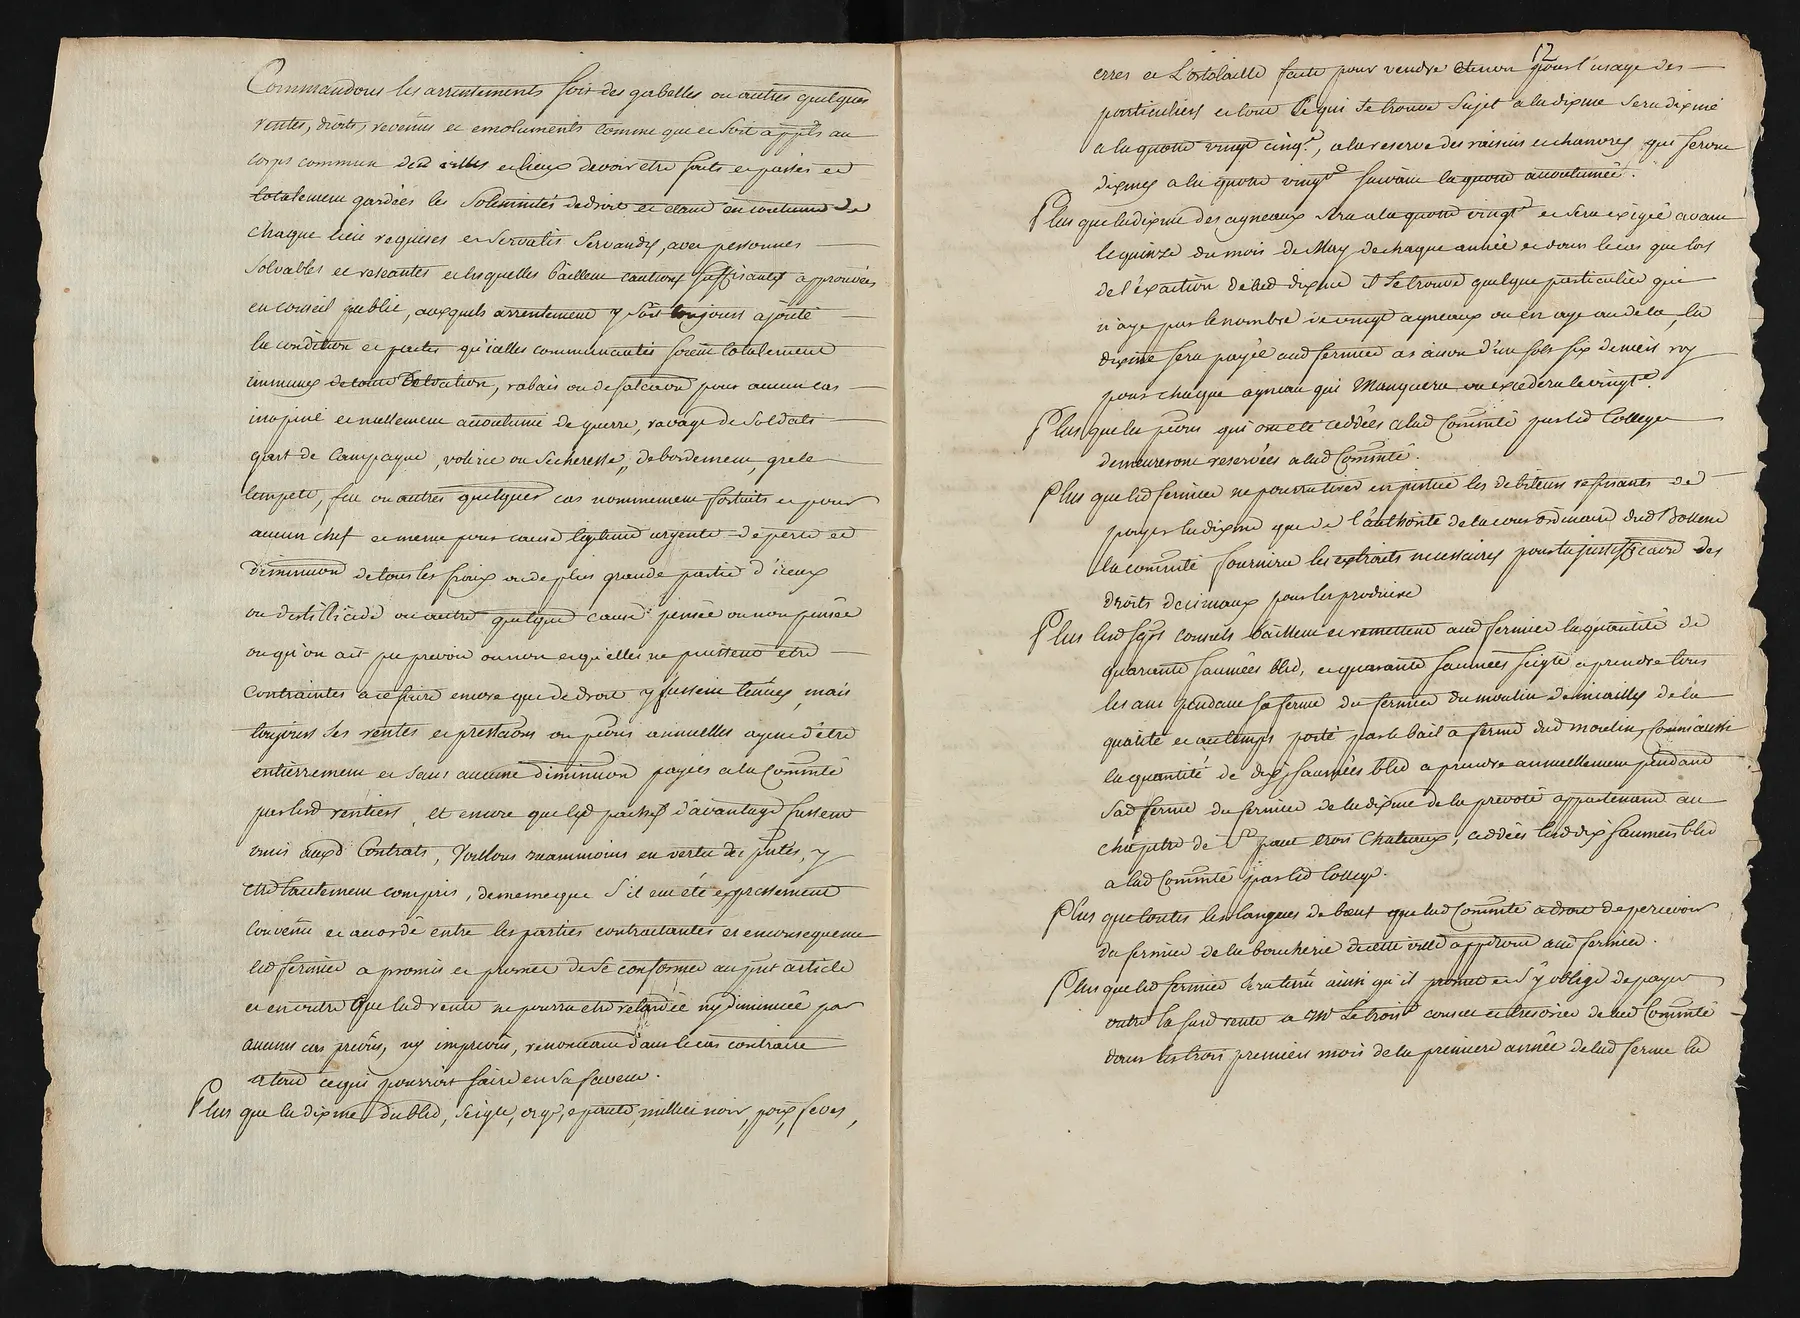 Commandons les arrentements soit des gabelles ou autres quelques
rentes, droits, revenus et emoluments comme que ce soit appts au
corps commun desd villes et lieux devoir etre faits et passés et
totalement gardées les Solemnités de droit et etant en coutume de
chaque lieu requises et servatis Servandis, avec personnes
Solvables et reseantes et lesquelles baillent cautions suffisantes approuvées
en conseil public, auxquels arrentement y soit toujours ajouté
la condition et pactes qu'icelles communautés soient totalement
immunes de toute rabais ou defalcaon pour aucun cas
inopiné et nullement accoutumé de guerre, ravage de soldats
gast de campagne, volerie ou secheresse, debordement, grele
tempete, feu ou autres quelques cas nommement fortuits et pour
aucun chef et meme pour cause legitime urgente de perte et
diminuon de tous les fruix ou de plus grande partie d'iceux
ou de ou autre quelque cause pensée ou non pensée
ou qu'on ait pu prevoir ou non et qu'elles ne puissent etre
contraintes a ce faire encore que de droit y fussent tenues, mais
toujours les rentes et prestaons ou pions annuelles ayent d'etre
entierrement et sans aucune diminuon payées a la Commté
par lesd rentiers, et encore que lesd pactes d'avantage fussent
omis auxd Contrats, Voulons neammoins en vertu des pntes, y
etre tacitement compris, de meme que s'il eut été expressement
convenu et accordé entre les parties contractantes et en consequence
led fermier a promis et promet de se conformer au pnt article
et en outre que lad rente ne pourra etre ny diminuée par
aucuns cas prevus, ny imprevus, renonceant dans le cas contraire
a tout ce qui pourroit faire en sa faveur.
Plus que la dixme du bled, seigle, orge, epeute, millet noir, poix, feves,
12
erres et L'ortolaille faite pour vendre et non pour l'usage des
particuliers et tout ce qui se trouve sujet a la dixme sera dixmé
a la quotte vingt cinqe, a la reserve des raisins et chanvres qui seront
dixmés a la quotte vingte suivant la quotte accoutumée.
Plus que la dixme des agneaux sera a la quotte vingte et sera exigée avant
le quinze du mois de May de chaque année et dans le cas que lors
de l'exaction de lad dixme il se trouve quelque particulier qui
n'aye pas le nombre de vingt agneaux ou en aye au dela, la
dixme sera payée aud fermier a raison d'un sols six deniers roy
pour chaque agneau qui Manquera ou excedera le vingte.
Plus que les pions qui ont été ceddées a lad Commté par led College
demeureront reservées a lad Commté.
Plus que led fermier ne pourra tirer en justice les debiteurs refusants de
payer la dixme que de l'authorité de la cour ordinaire dud Bollene
la commté fournira les extraits necessaires pour la justificaon des
droits decimaux pour les produire
Plus lesd sgrs consuls baillent et remettent aud fermier la quantité de
quarante saumées bled, et quarante saumées seigle a prendre tous
les ans pendant sa ferme du fermier du moulin de de la
qualité et au temps porté par le bail a ferme dud moulin, comme aussi
la quantité de dix saumées bled a prendre annuellement pendant
sad ferme du fermier de la dixme de la prevoté appartenant au
chapitre de St paul trois Chateaux, ceddées lesd dix saumées bled
a lad Commté par led College.
Plus que toutes les langues de bœuf que lad Commté a droit de percevoir
du fermier de la boucherie de cette ville appdront aud fermier.
Plus que led fermier sera tenu ainsi qu'il promet et s'y oblige de payer
outre la susd rente a Mr consul et tresorier de lad Commté
dans les trois premiers mois de la premiere année de lad ferme la